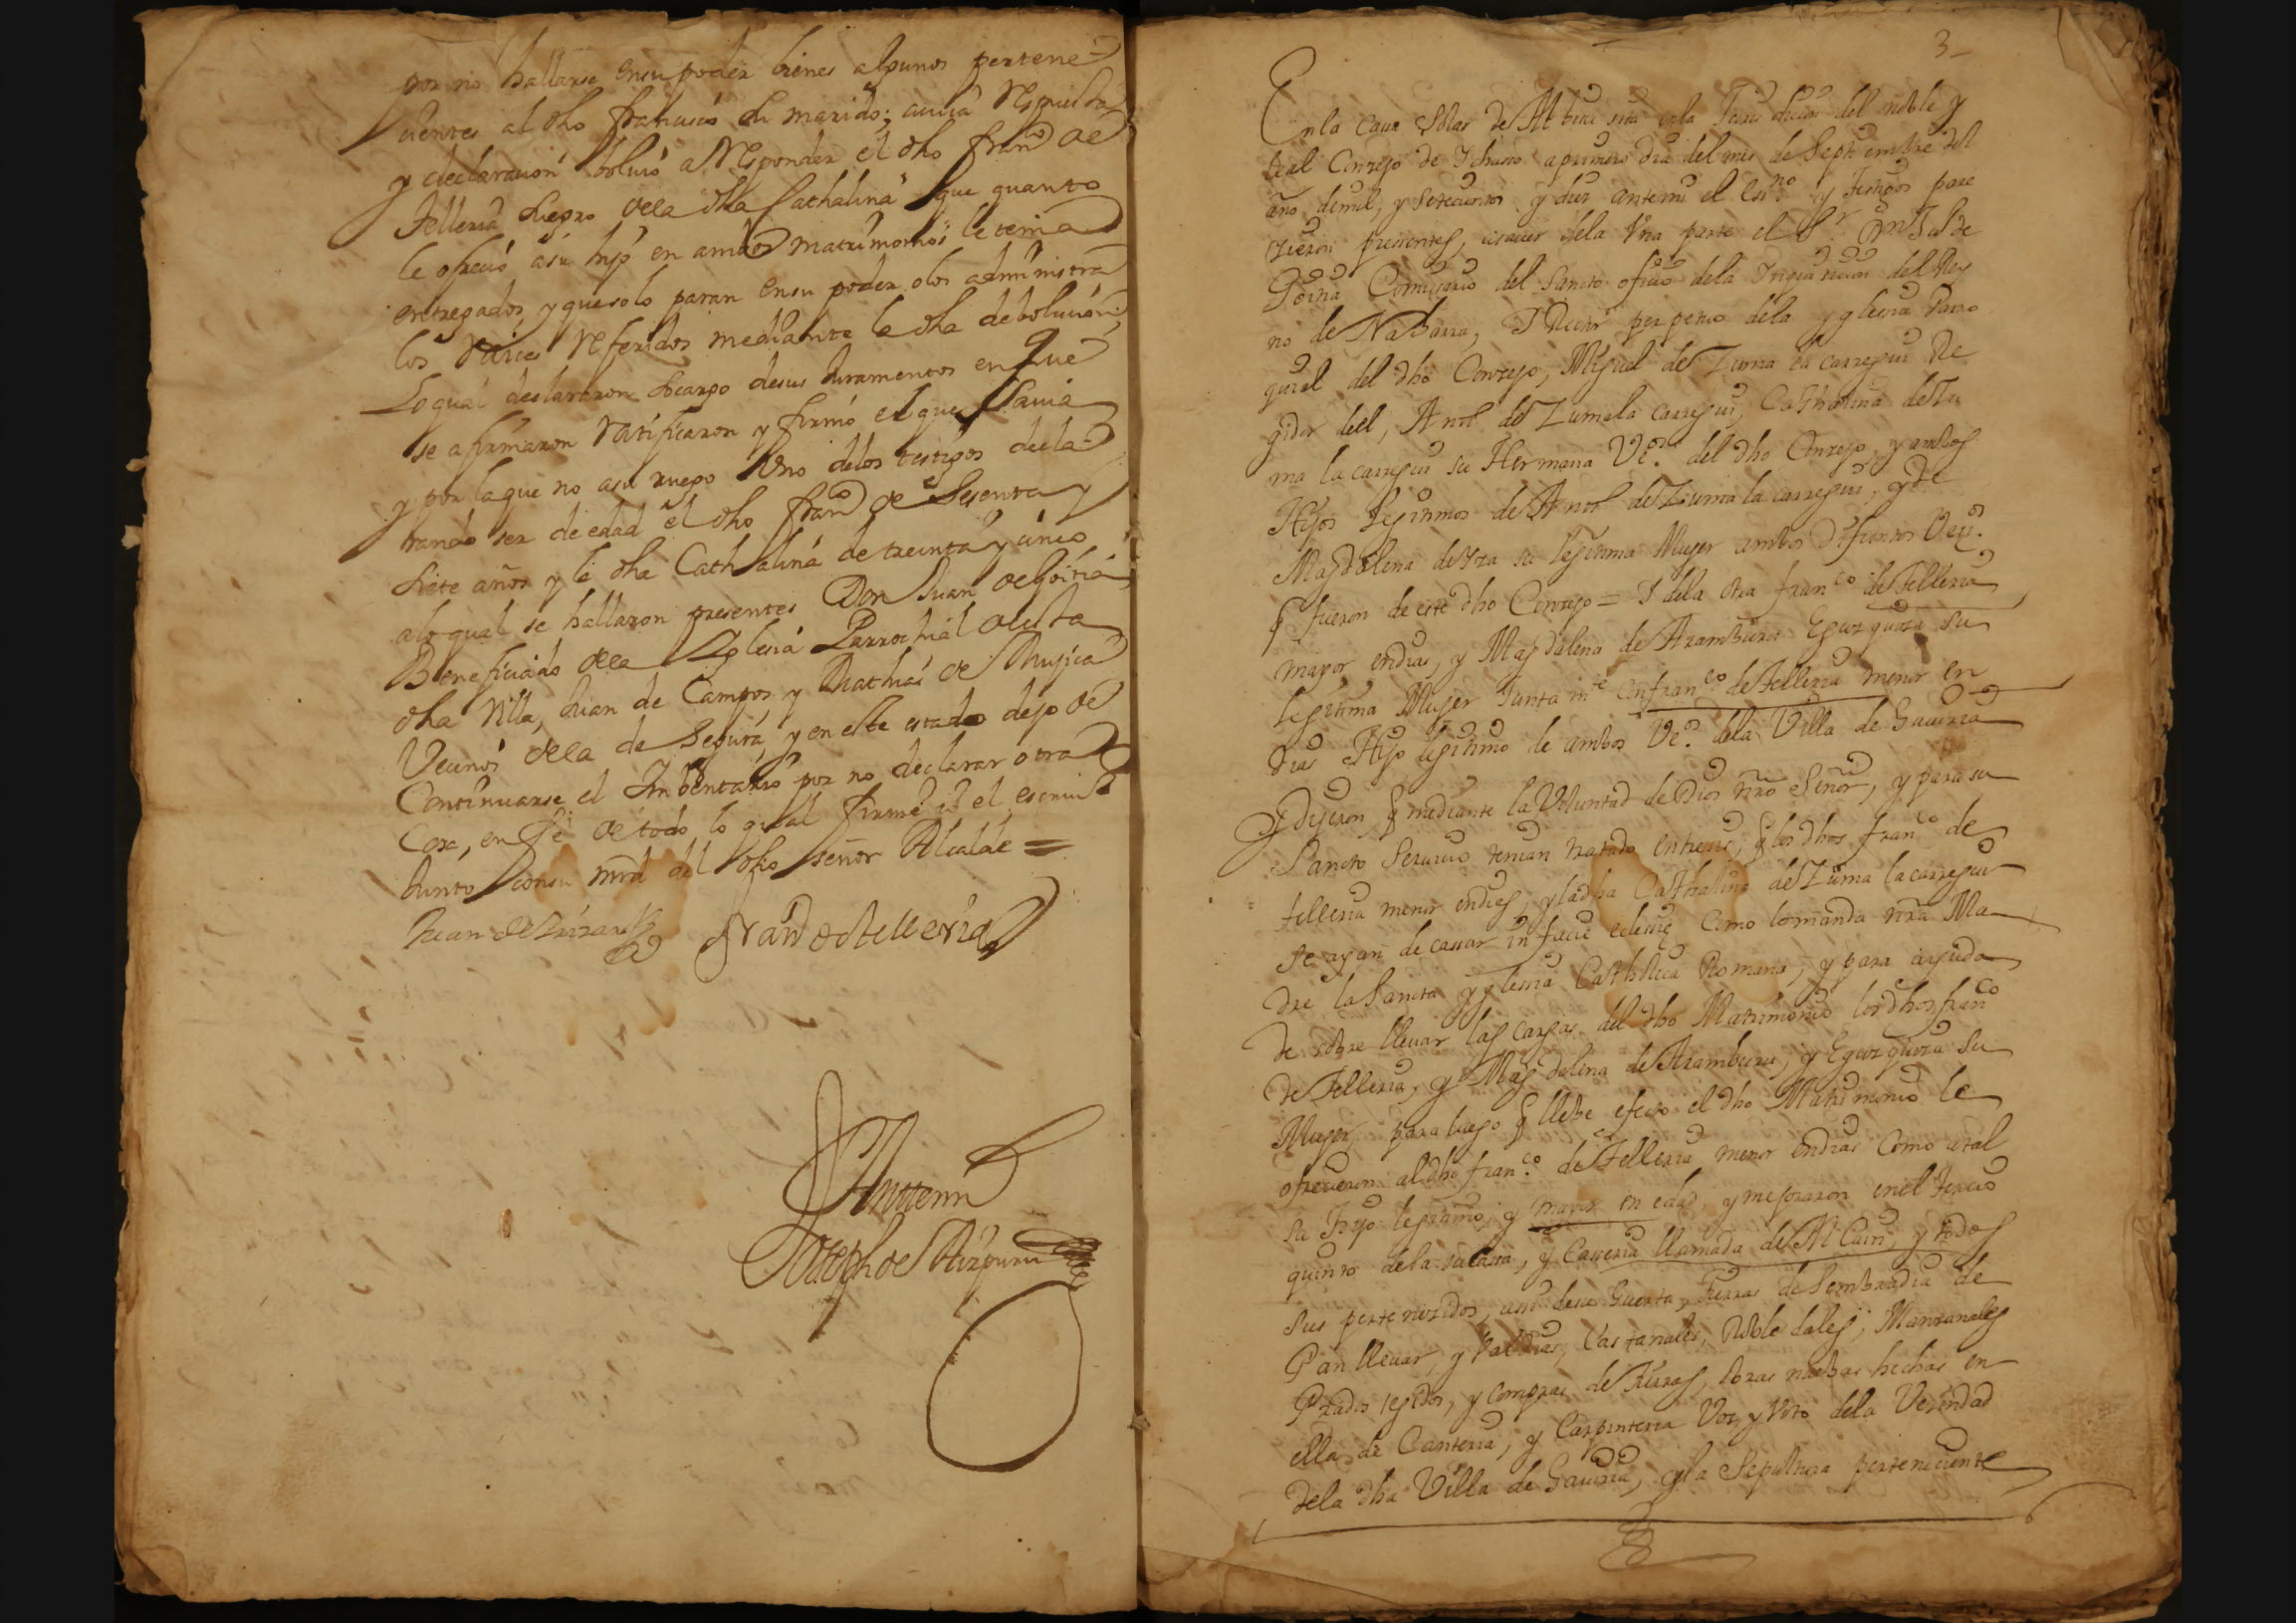 por no hallarse en su poder bienes algunos pertene
cientes al dho francisco su marido; cuuia respuesta
y declaraçion bolvio a responder el dho franco de
Telleria suegro dela dha Cathalina que quanto
le ofrecio a su hijo en ambos matrimonios le tenia
entregados, y que solo paran en su poder olos administra
los raices referidos mediante la dha debolucion;
Lo qual declararon socargo de sus Juramentos en que
se afirmaron ratificaron y firmó el que savia
y por la que no asu ruego Uno delos testigos decla
rando ser de edad el dho franco de sesenta y
siete años y la dha Cathalina de treinta y cinco
alo qual se hallaron presentes Don Juan de Goitia
Beneficiado dela Iglesia Parrochial desta
dha Villa, Juan de Campos y Mathias de Mujica
Vecinos dela de Segura, y en este estado dejo de
Continuarse el Imbentario por no declarar otra
Cosa, en fe de todo lo qual firmé yo el escriuº
Junto con su mrd del dho señor Alcalde =
Juan de Franco de Telleria
Antemi
Joseph de Aizpuru
3
En la Casa Solar de sita en la Jurisdicion del noble y
leal Conzejo de Ydiazaual a primero dia del mes de Septiembre del
año de mil, y setecientos y diez ante mi el Esno y testigos pare
zieron presentes, es asauer dela Vna parte el Sr Dn Jul de
Goitia Comisario del Sancto oficio dela Inquisicion del Rey
no de Nabarra, I Rector perpetuo dela yglesia Parro
quial del dho Conzejo, Miguel de Zumalacarregui Re
gidor del, Antº de Zumala carregui, Catalina de Zu
ma la carregui su Hermana Veº del dho Conzejo, y ambos
Hijos legitimos de Antº de Zuma la carregui, y de
Magdalena de Yza su legitima Muger ambos difuntos Veºs
q fueron de este dho Conzejo = I dela otra franco de Telleria
mayor en dias, y Magdalena de Aramburu Eguzquiza su
legitima Muger Junta mte con franco de Telleria menor en
dias Hijo legitimo de ambos Veº dela Villa de Gauiria
Y dijeron q mediante la Voluntad de Dios nro Señor, y para su
Sancto Seruicio tenian tratado entre si, q los dhos franco de
telleria menor en dias, y la dha Cathalina de Zuma la carregui
se ayan de cassar in facie eclessie Como lo manda nra Ma
dre la Sancta yglesia Catholica Romana, y para ayuda
de sobre lleuar las cargas del dho Matrimonio los dhos franco
de Telleria, y Magdalena de Aramburu, y Eguzquiza su
Muger, para luego q llebe efecto el dho Matrimonio le
ofrecieron al dho franco de Telleria menor en dias Como a tal
su Hijo legitimo, y mayor en edad, y mejoraron en el tercio
quinto de la su casa, y Caseria llamada de y todos
sus pertenezidos, assi de su Guerta, Tierras de Sembradia de
Pan lleuar, y baldias, Castañales, Roble dales, Manzanales
Prados egidos, y compras de tierras, obras nuebas hechas en
ella de Canteria, y Carpinteria Voz y Voto dela Vezindad
dela dha Villa de Gauiria, y la Sepultura perteneciente